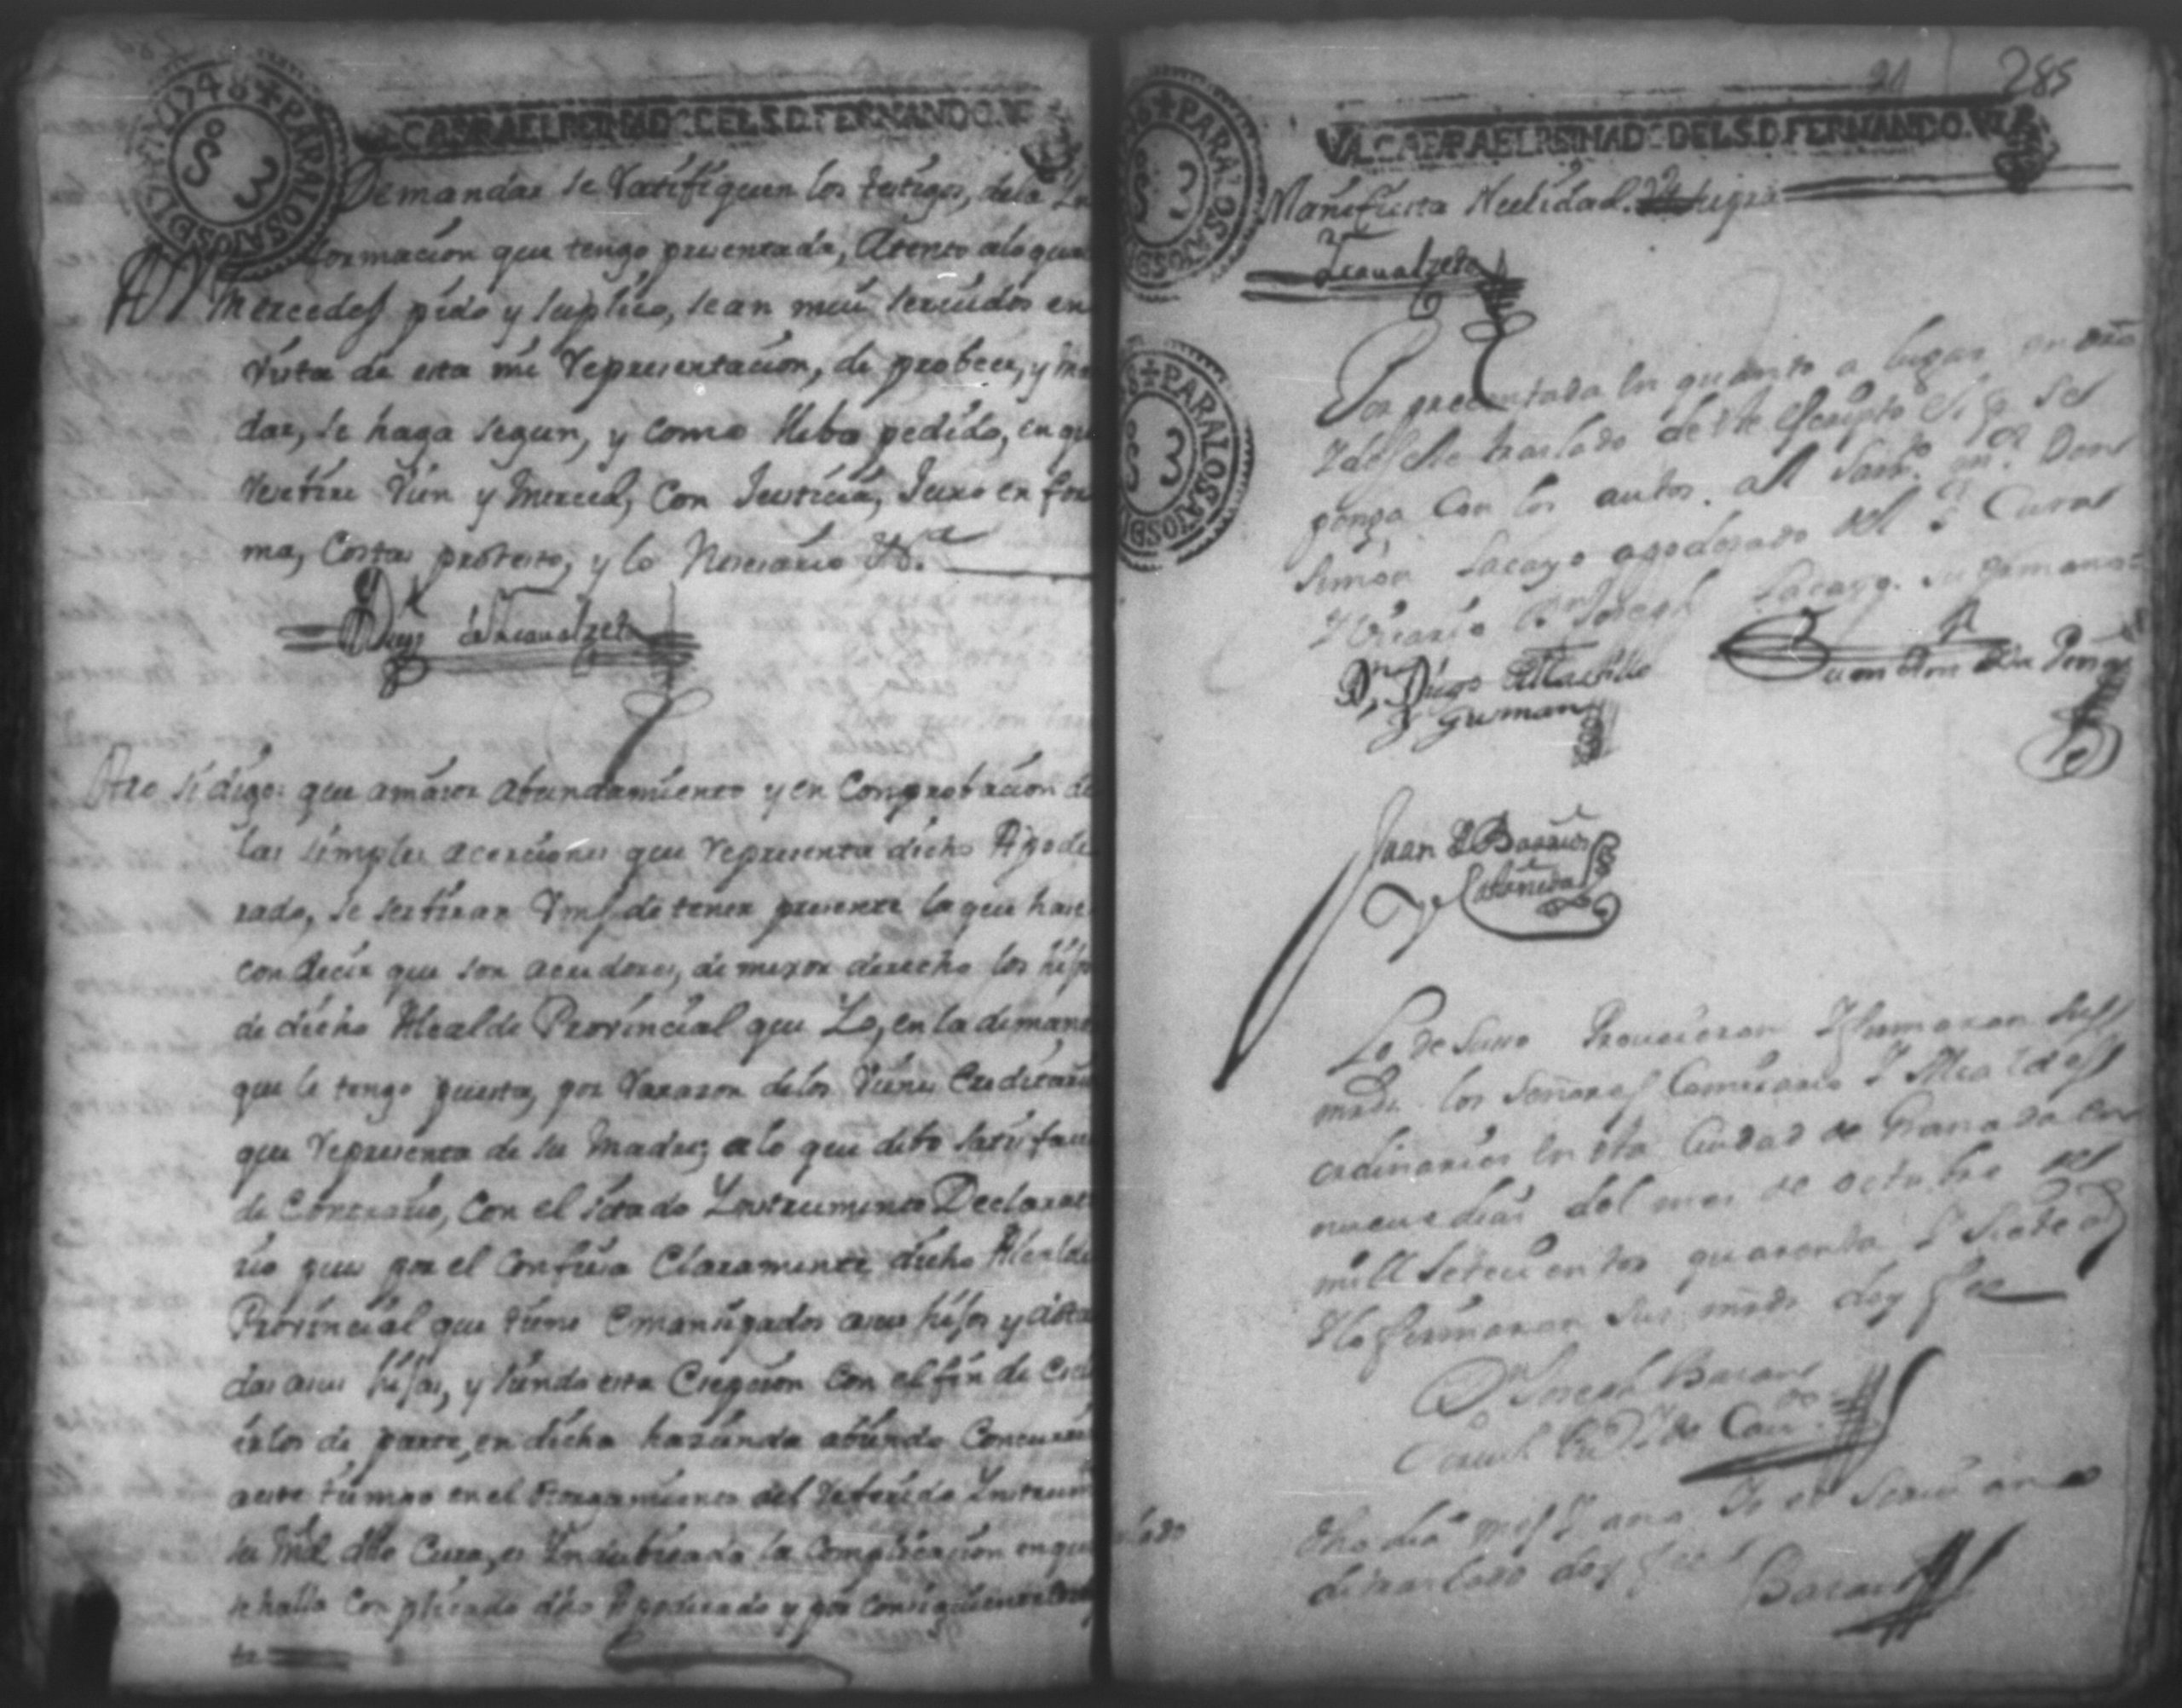 1748 + PARA LOS AÑOS DE 17
S 3
VALGA PARA EL REINADO DEL S. D. FERNANDO. VI
Demandar se Ratifiquen los testigos, de la In
formacion que tengo presentada, Atento alo qual
A Vs Mercedes pido y suplico, sean mui servidos en
vista de esta mi Representacion, de probeer, y man
dar, se haga segun, y como llebo pedido, en que
Resivire Vien y Merced, Con Justicia, Juro en for
ma, Costas protesto, y lo Nesesario &a
Diego de Necaualzeta
Otro si digo: que a maior abundamiento y en Comprobacion de
las simples acerciones que Representa dicho Apode
rado, se serbiran Vms de tener presente la que hase
con decir que son acredores, de mexor derecho los hijos
de dicho Alcalde Provincial que Yo, en la deman
que le tengo puesta, por Varazon delos Vienes Ereditarios
que Representa de su Madre; alo que debo satisfacer
de Contrario, Con el sitado Ynstrumento Declarato
rio que por el Confiesa Claramente dicho Alcalde
Provincial que tiene Emansipados asus hijos y dota
das asus hijas, y siendo esta Cregsion Con el fin de
en dicha hazienda abiendo
tiempo en el otorgamiento del Referido Ynstrum
su Md dho Cura, es Yndubitada la Complicasion en que
se halla Con plicado dho Apoderado y por Consiguiente
te
21 285
+ PARA LOS AÑOS DE
S 3
VALGA PARA EL REINADO DEL S. D. FERNANDO. VI
Manifiesta Nulidad.
Necaualzeta
+ PARA LOS AÑOS DE
S 3
Por precentada en quanto a lugar en dro
Y desele traslado de este escripto
ponga Con los autos. all Sarto mr. Don
Simon Lacayo apoderado del Sr Cura
Y Vicario Br Joseph Lacayo. su hermano=
Dn Diego del Castillo
y Guzman
Juan de la Peña
Juan de Barrios
y Castañeda
Lo de suso Proveieron Y firmaron sus
mrds. los Señores Comisario Y Alcaldes
ordinarios en esta Ciudad de Granada en
nueve dias del mes de octubre de
mill setecientos quarenta Y siete as
Y lo firmaron sus mrds doy fee
Dn Joseph Bacan
Dho dia mes Y ano Yo el Scriuano
di traslado doy fee
Bacan